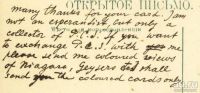 ОТКРЫТОЕ ПИСЬМО.
many thanks for your card. I am
not an esperantist, but only
collector of P.C.s. If you want
to exchange P.C.S. with me
please send me coloured views
of Niagara, Geysers and shall
send you the coloured cards only.